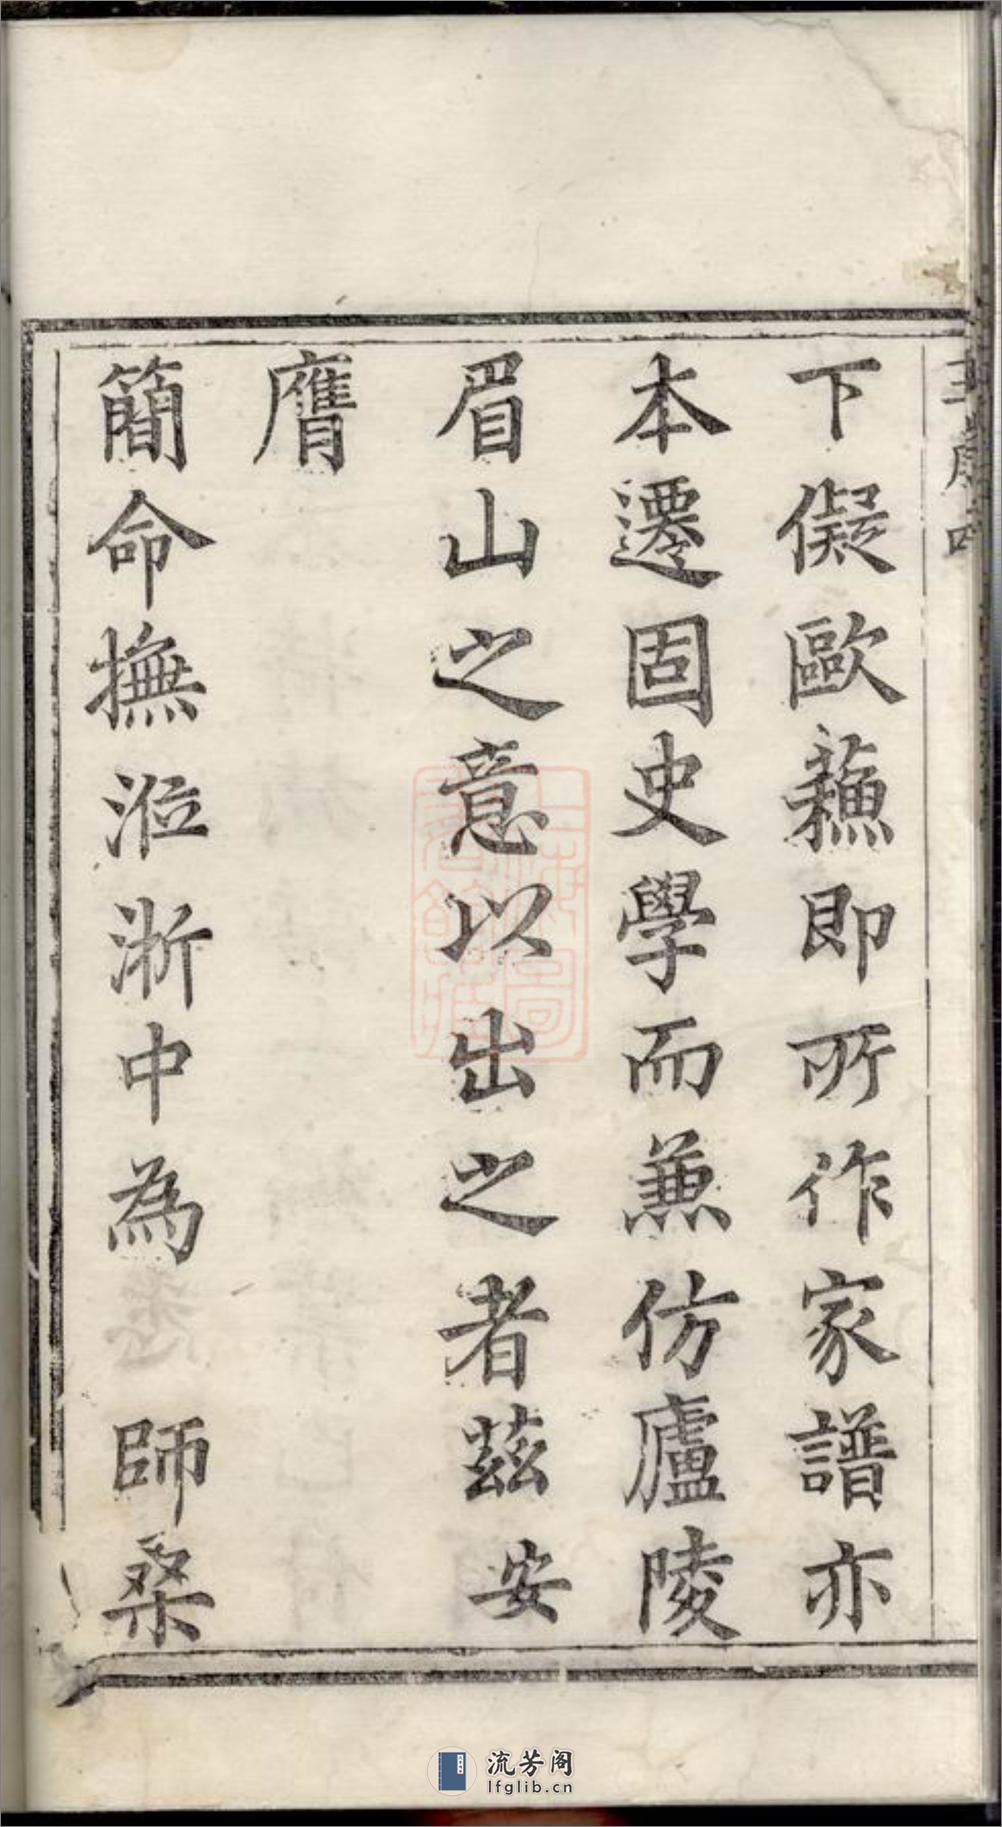 下儗歐蘓即所作家譜亦
本遷固史學而兼仿廬陵
眉山之意以出之者茲安
膺
簡命撫涖浙中為 師桑
上海圖書館藏
流芳阁
lfglib.cn